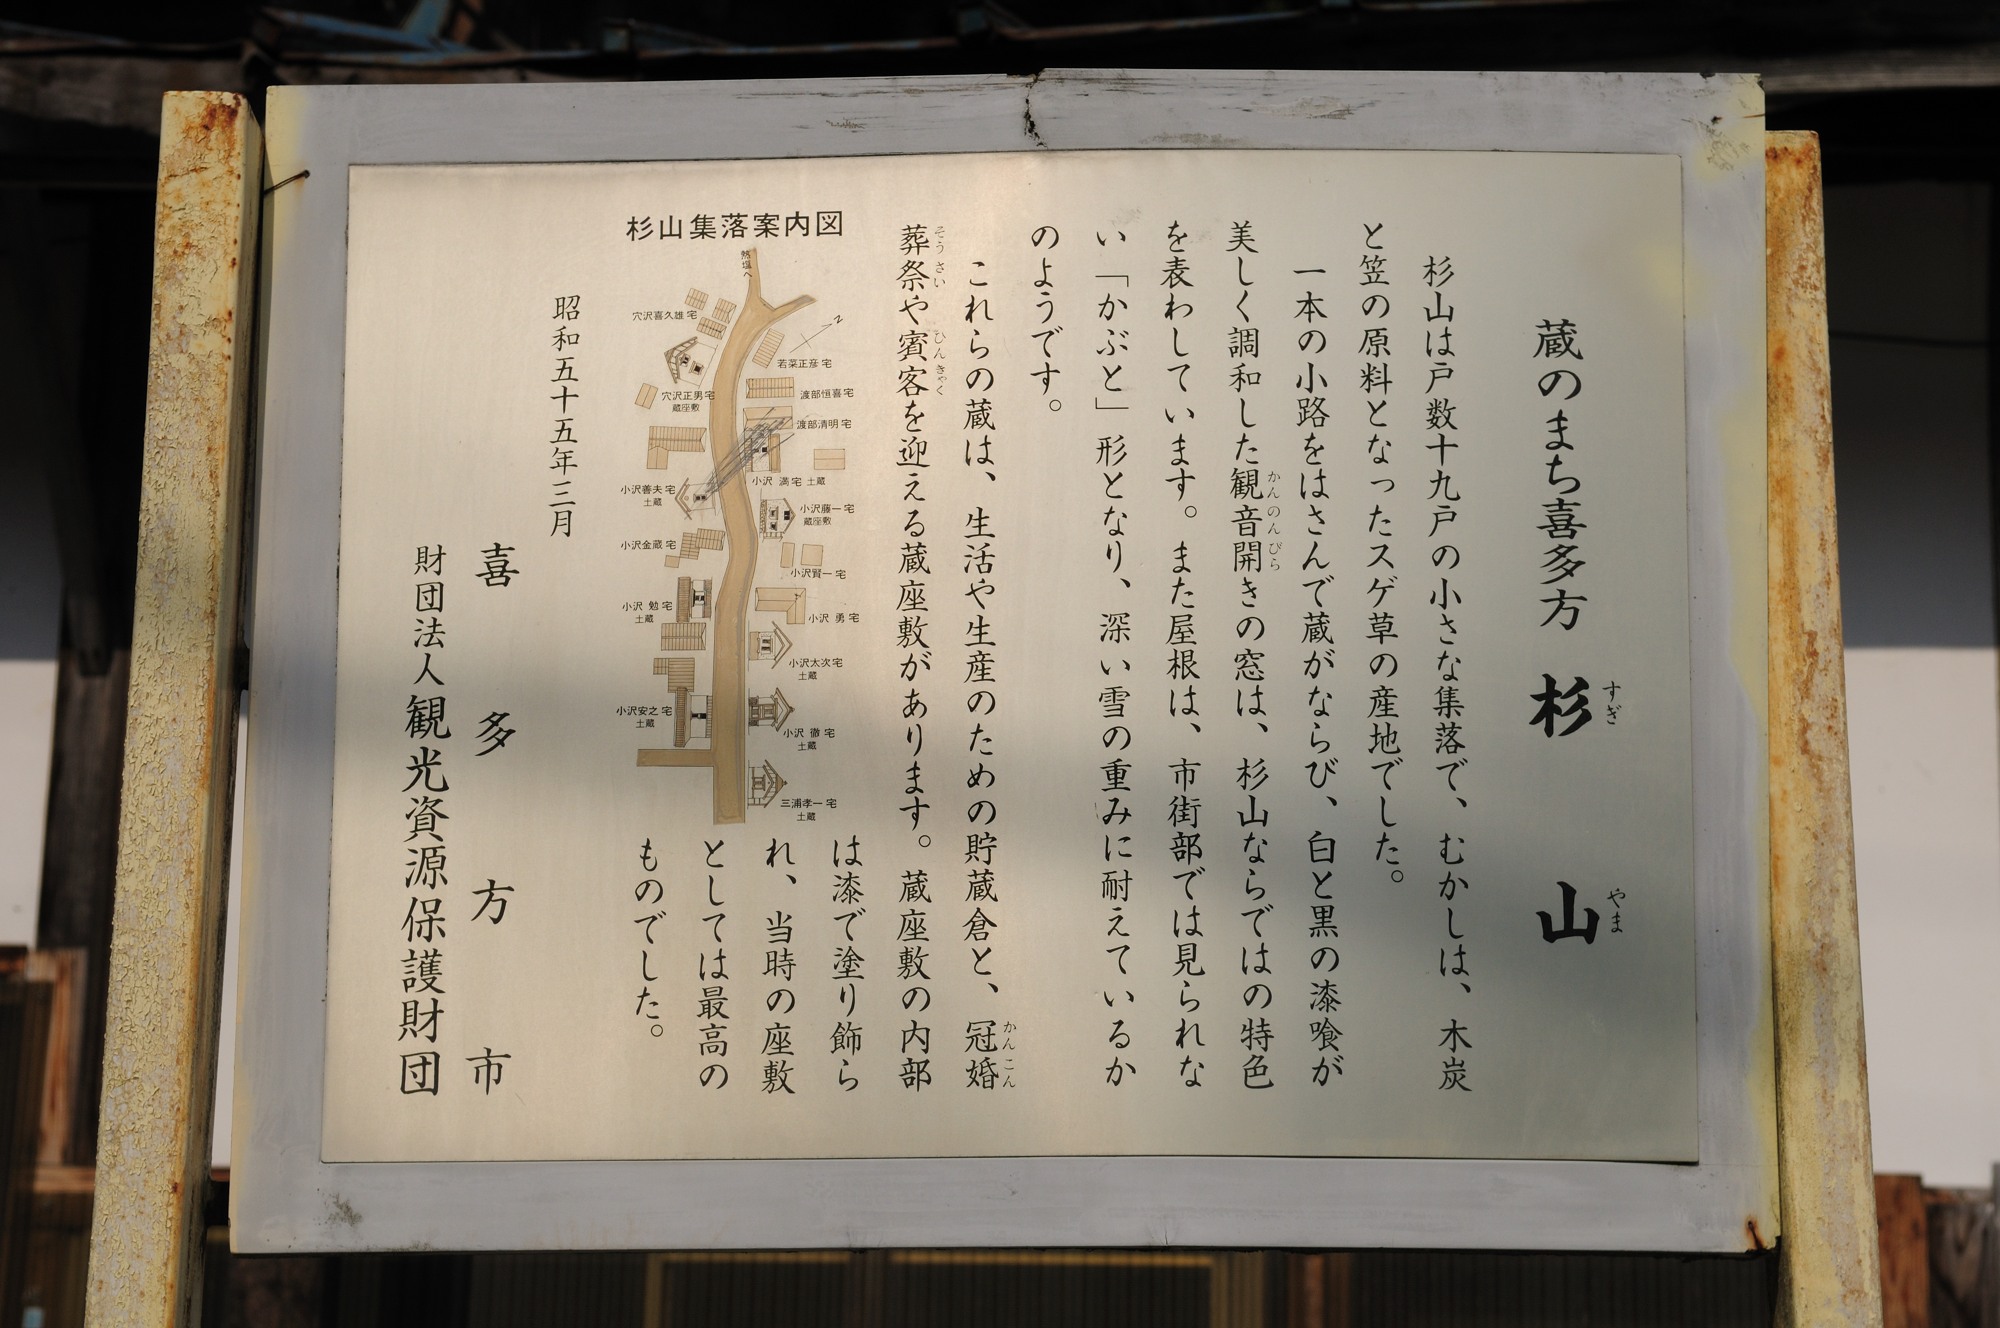 蔵のまち喜多方 杉山
すぎ
やま
杉山は戸数十九戸の小さな集落で、むかしは、木炭
と笠の原料となったスゲ草の産地でした。
一本の小路をはさんで蔵がならび、白と黒の漆喰が
美しく調和した観音開きの窓は、杉山ならではの特色
かんのんびら
を表わしています。また屋根は、市街部では見られな
い「かぶと」形となり、深い雪の重みに耐えているか
のようです。
これらの蔵は、生活や生産のための貯蔵倉と、冠婚
かんこん
葬祭や賓客を迎える蔵座敷があります。蔵座敷の内部
そうさい
ひんきゃく
は漆で塗り飾ら
れ、当時の座敷
としては最高の
ものでした。
杉山集落案内図
熱塩へ
N
穴沢喜久雄宅
若菜正彦宅
穴沢正男宅
蔵座敷
渡部恒喜宅
渡部清明宅
小沢善夫宅
土蔵
小沢 満宅 土蔵
小沢藤一宅
蔵座敷
小沢金蔵宅
小沢賢一宅
小沢 勉宅
土蔵
小沢 勇宅
小沢太次宅
土蔵
小沢安之宅
土蔵
小沢 徹宅
土蔵
三浦孝一宅
土蔵
昭和五十五年三月
喜多方市
財団法人観光資源保護財団